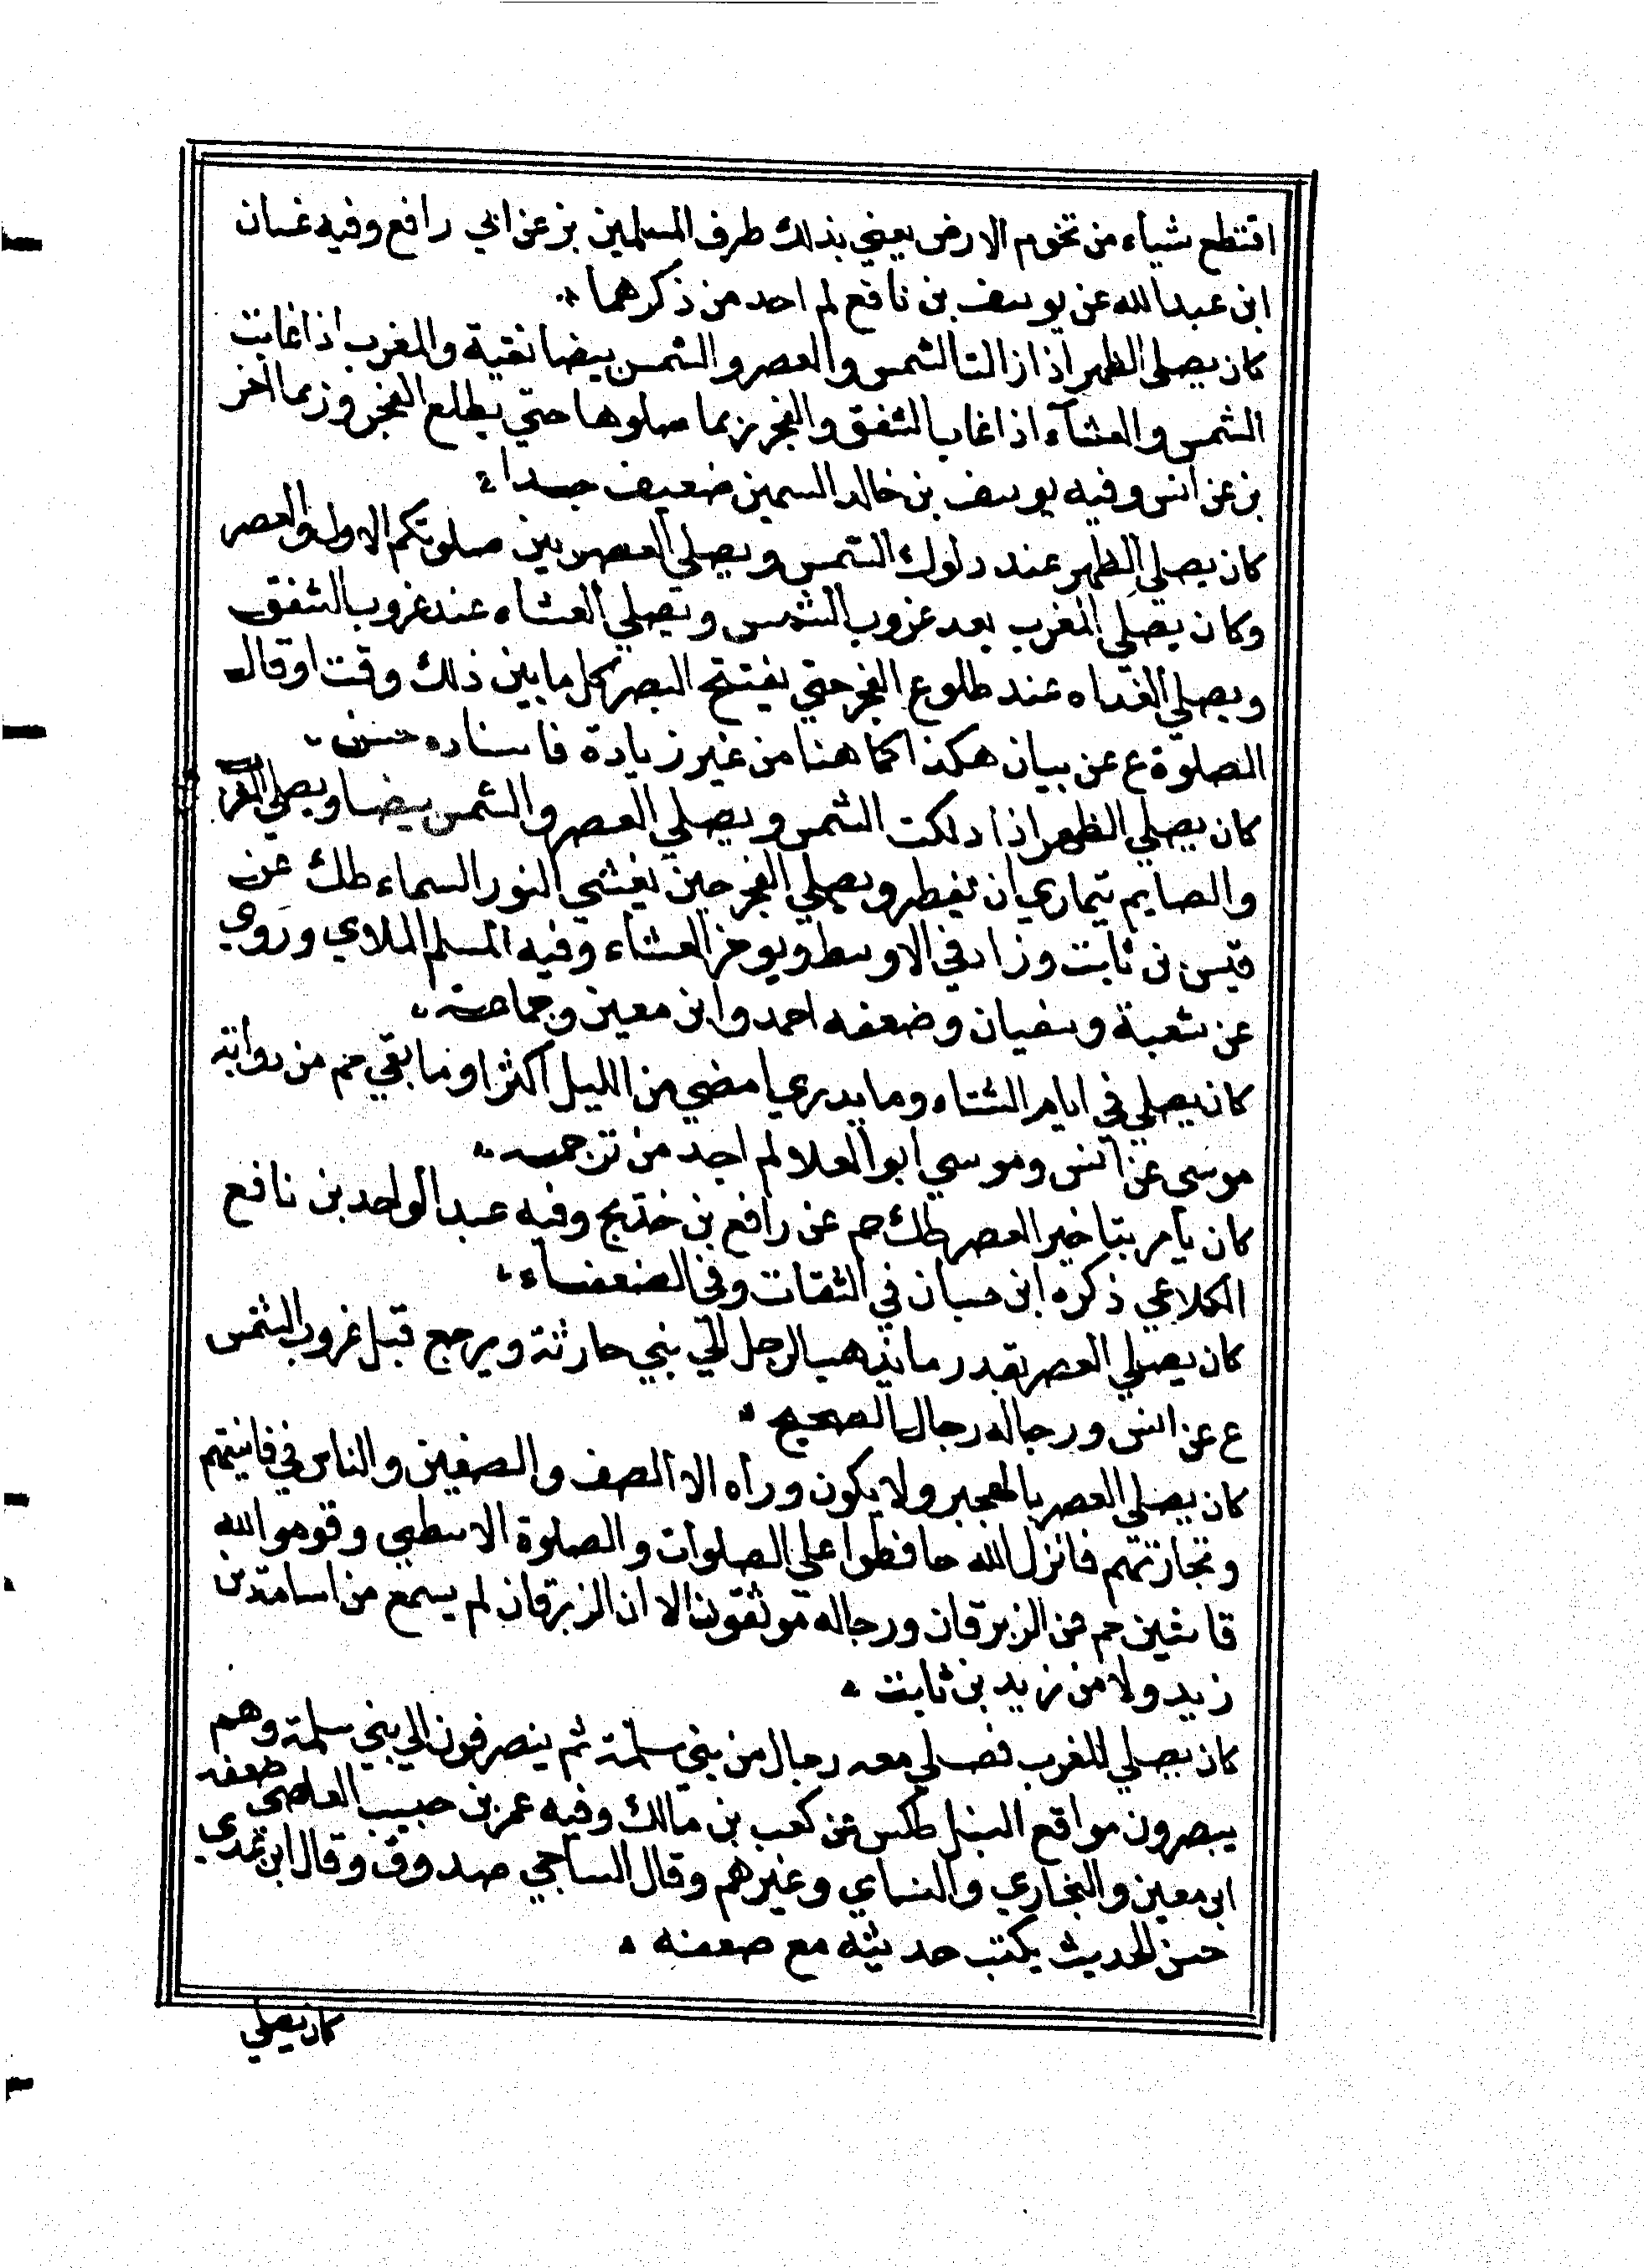 اقتطع شياء من تخوم الارض يعني بذلك طرف المسلمين بز عن ابي رافع وفيه غسان
ابن عبدالله عن يوسف بن نافع لم احد من ذكرهما
كان يصلي الظهر اذا زالت الشمس والعصر والشمس بيضا نقية والمغرب اذا غابت
الشمس والعشآء اذا غاب الشفق والفجر ربما صلوها حتي يطلع الفجر وربما اخر
بز عن انس وفيه يوسف بن خالد السمين ضعيف جدا
كان يصلي الظهر عند دلوك الشمس ويصلي العصر بين صلوتكم الاولي والعصر
وكان يصلي المغرب بعد غروب الشمس ويصلي العشاه عند غروب الشفق
ويصلي الغداه عند طلوع الفجر حتي يفتتح البصر كل ما بين ذلك وقت او قال
الصلوة ع عن بيان هكذا كما هنا من غير زيادة فاسناده حسن
كان يصلي الظهر اذا دلكت الشمس ويصلي العصر والشمس بيضا ويصلي المغرب
والصايم يتماري ان يفطر ويصلي الفجر حين يغشي النور السماء طك عن
قيس بن ثابت وزاد في الاوسط ويوخر العشاء وفيه المسلم الملاي وروي
عن شعبة وسفيان وضعفه احمد وابن معين وجماعة
كان يصلي في ايام الشتاء وما يدري ا مضي من الليل اكثر او ما بقي حم من رواية
موسي عن انس وموسي ابو العلا لم اجد من ترجمه
كان يامر بتاخير العصر طك حم عن رافع بن خديج وفيه عبد الواحد بن نافع
الكلاعي ذكره ابن حبان في الثقات وفي الضعفاء
كان يصلي العصر بقدر ما يذهب الرجل الي بني حارثة ويرجع قبل غروب الشمس
ع عن انس ورجاله رجال الصحيح
كان يصلي العصر بالهجير ولا يكون وراه الا الصف والصفين والناس في قايلتهم
وتجارتهم فانزل الله حافظوا علي الصلوات والصلوة الاسطي وقوموا لله
قانتين حم من الزبرقان ورجاله موثقون الا ان الزبرقان لم يسمع من اسامة بن
زيد ولا من زيد بن ثابت
كان يصلي المغرب فصلي معه رجال من بني سلمة ثم ينصرفون الي بني سلمة وهم
يبصرون مواقع النبل طكس عن كعب بن مالك وفيه عمر بن حبيب القاضي ضعفه
ابن معين والبخاري والنساي وغيرهم وقال الساجي صدوق وقال ابن عدي
حسن الحديث يكتب حديثه مع ضعفه
كان يصلي